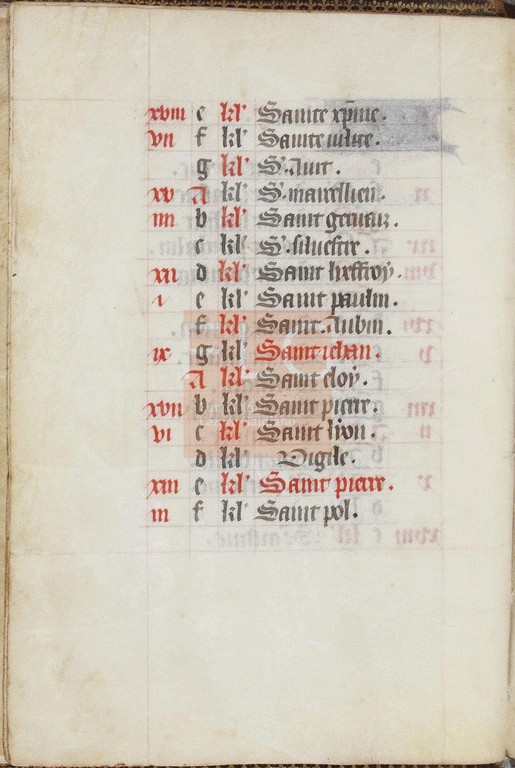 xviii e kl' Sainte xp̄ine.
vii f kl' Sainte iulite.
g kl' S. Auit.
xv A kl' S. marcellien.
iiii b kl' Saint geruaiz.
c kl' S. siluestre.
xii d kl' Saint leffroy.
i e kl' Saint paulin.
f kl' Saint Aubin.
ix g kl' Saint iehan.
A kl' Saint eloy.
xvii b kl' Saint pierre.
vi c kl' Saint lyon.
d kl' Vigile.
xiiii e kl' Saint pierre.
iii f kl' Saint pol.